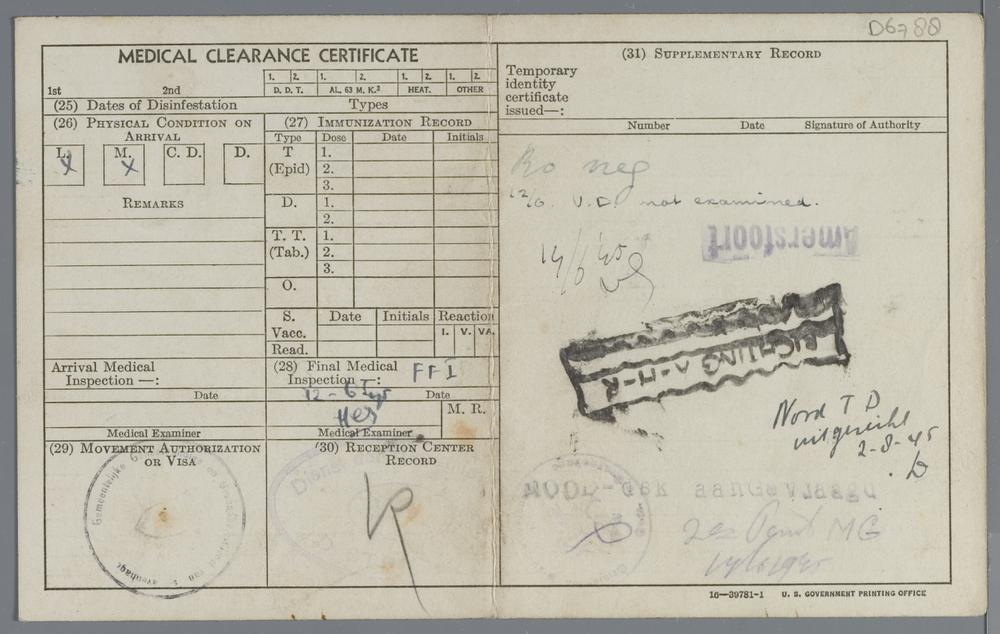 D6788
MEDICAL CLEARANCE CERTIFICATE
1. 2. 1. 2. 1. 2. 1. 2.
1st 2nd D. D. T. AL. 63 M. K.² HEAT. OTHER
(25) Dates of Disinfestation Types
(26) PHYSICAL CONDITION ON
ARRIVAL
L. M. C. D. D.
X X
REMARKS
(27) IMMUNIZATION RECORD
Type Dose Date Initials
T 1.
(Epid) 2.
3.
D. 1.
2.
T. T. 1.
(Tab.) 2.
3.
O.
S. Date Initials Reaction
Vacc. I. V. VA.
Read.
Arrival Medical
Inspection —:
Date
Medical Examiner
(28) Final Medical
Inspection —: FFI
Date
M. R.
Medical Examiner
(29) MOVEMENT AUTHORIZATION
OR VISA
Gemeentelijke
(30) RECEPTION CENTER
RECORD
(31) SUPPLEMENTARY RECORD
Temporary
identity
certificate
issued—:
Number Date Signature of Authority
Ro neg
12/6. V.D. not examined.
Amersfoort
14/6 45
Nord T D
uitgereikt
2-8-45
aangevraagd
MG
16—39781-1 U. S. GOVERNMENT PRINTING OFFICE